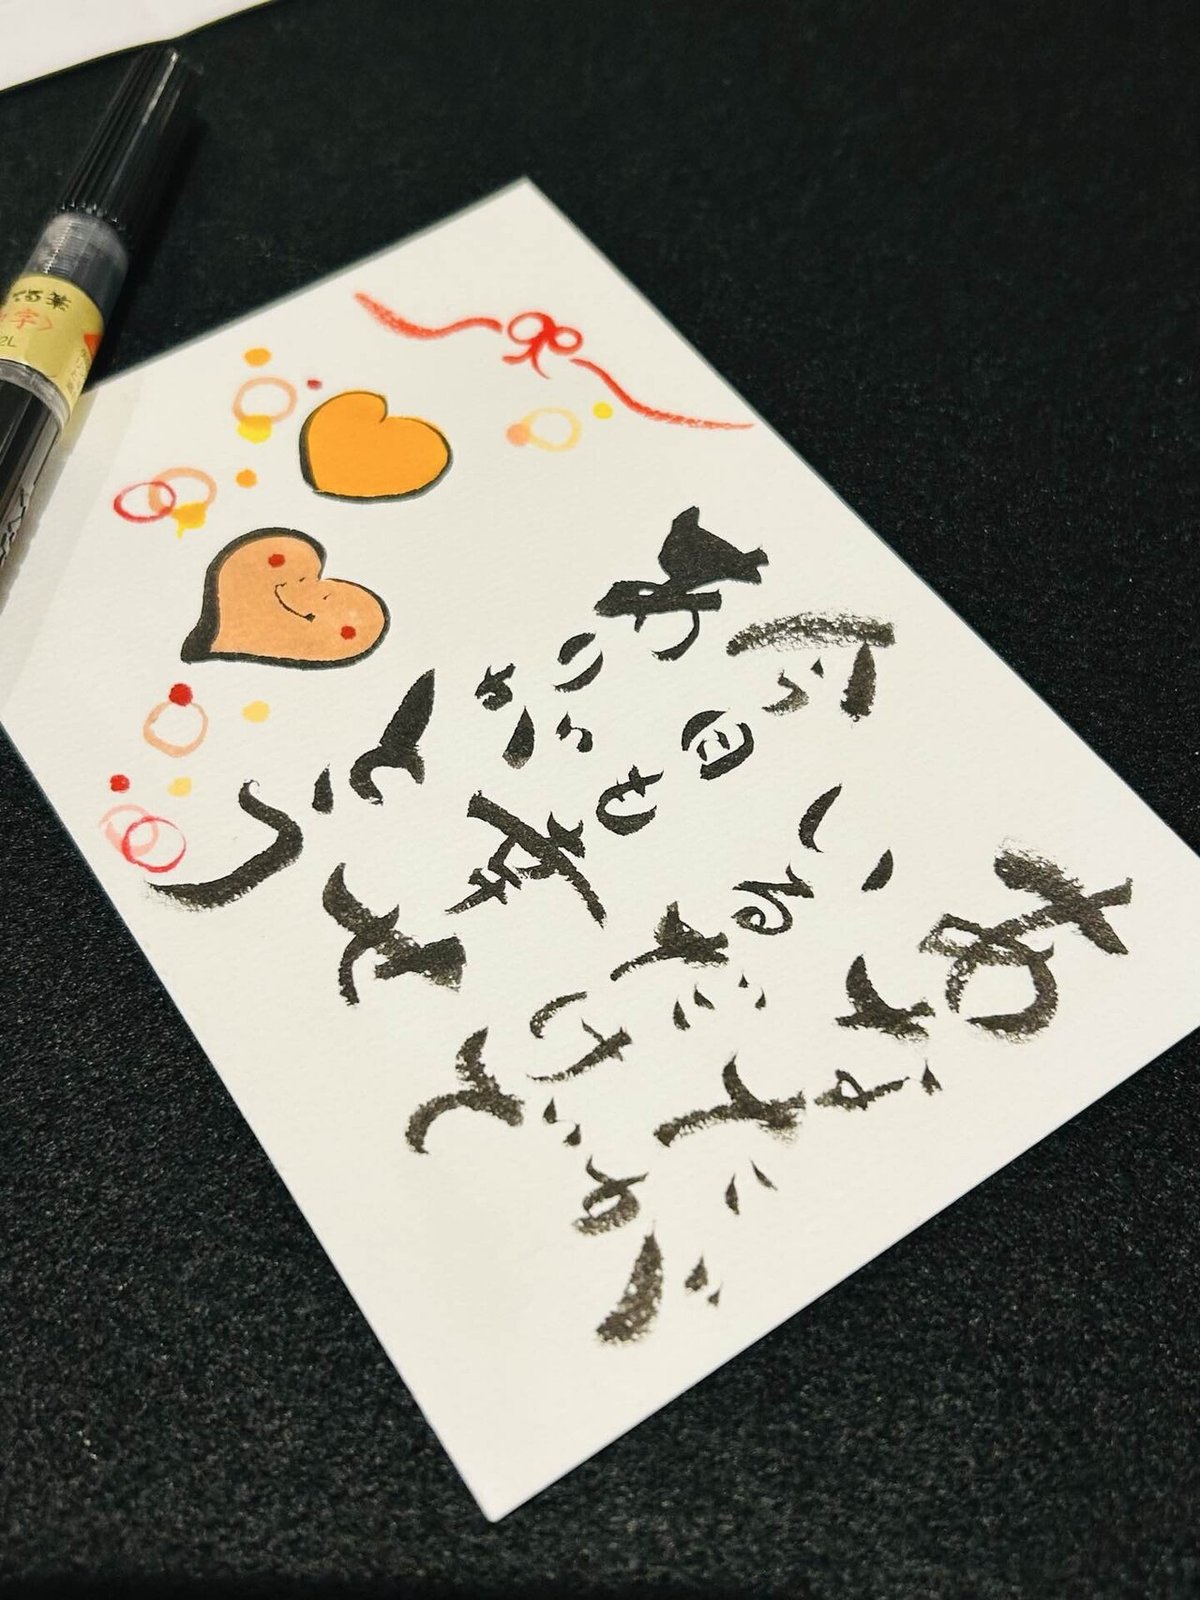 あなたが
いるだけで
今日も幸せ
ありがとう
字〉